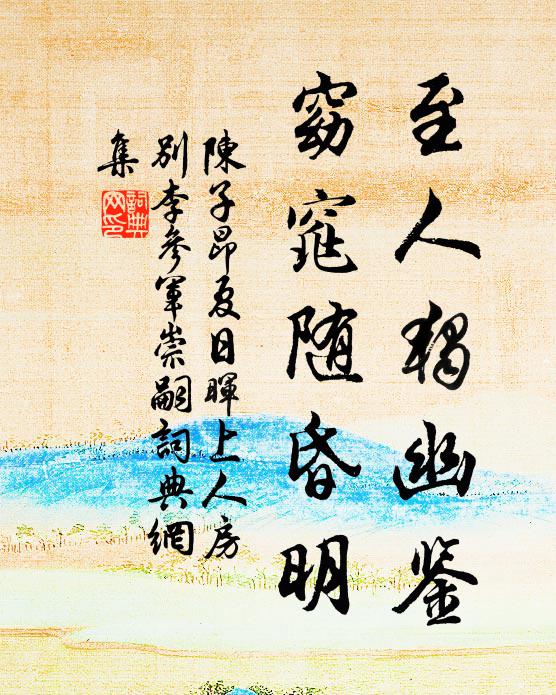 至人獨幽鉴
窈窕随昏明
陳子昂夏日暉上人房
别李参軍崇嗣詞典網
集
詞典网印